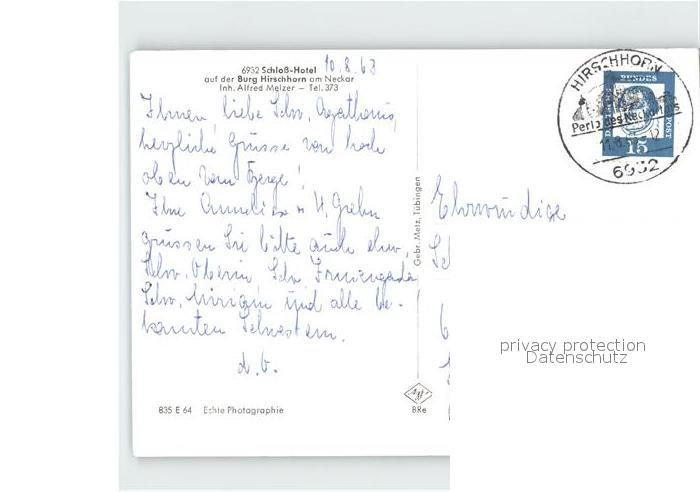 6932 Schloß-Hotel 10.8.63
auf der Burg Hirschhorn am Neckar
Inh. Alfred Melzer – Tel. 373
Ihnen, liebe Schw. Agathonis,
herzliche Grüsse von hoch
oben vom Berge!
Ihre Annelies u H.
grüssen Sie bitte auch ehrw.
Schw. Oberin Schw. Irmengarda
Schw. und alle be-
kannten Schwestern.
d. O.
835 E 64 Echte Photographie
BRe
Gebr. Metz, Tübingen
Ehrwürdige
HIRSCHHORN
Perle des Neckartales
6932
BUNDES
POST
15
privacy protection
Datenschutz